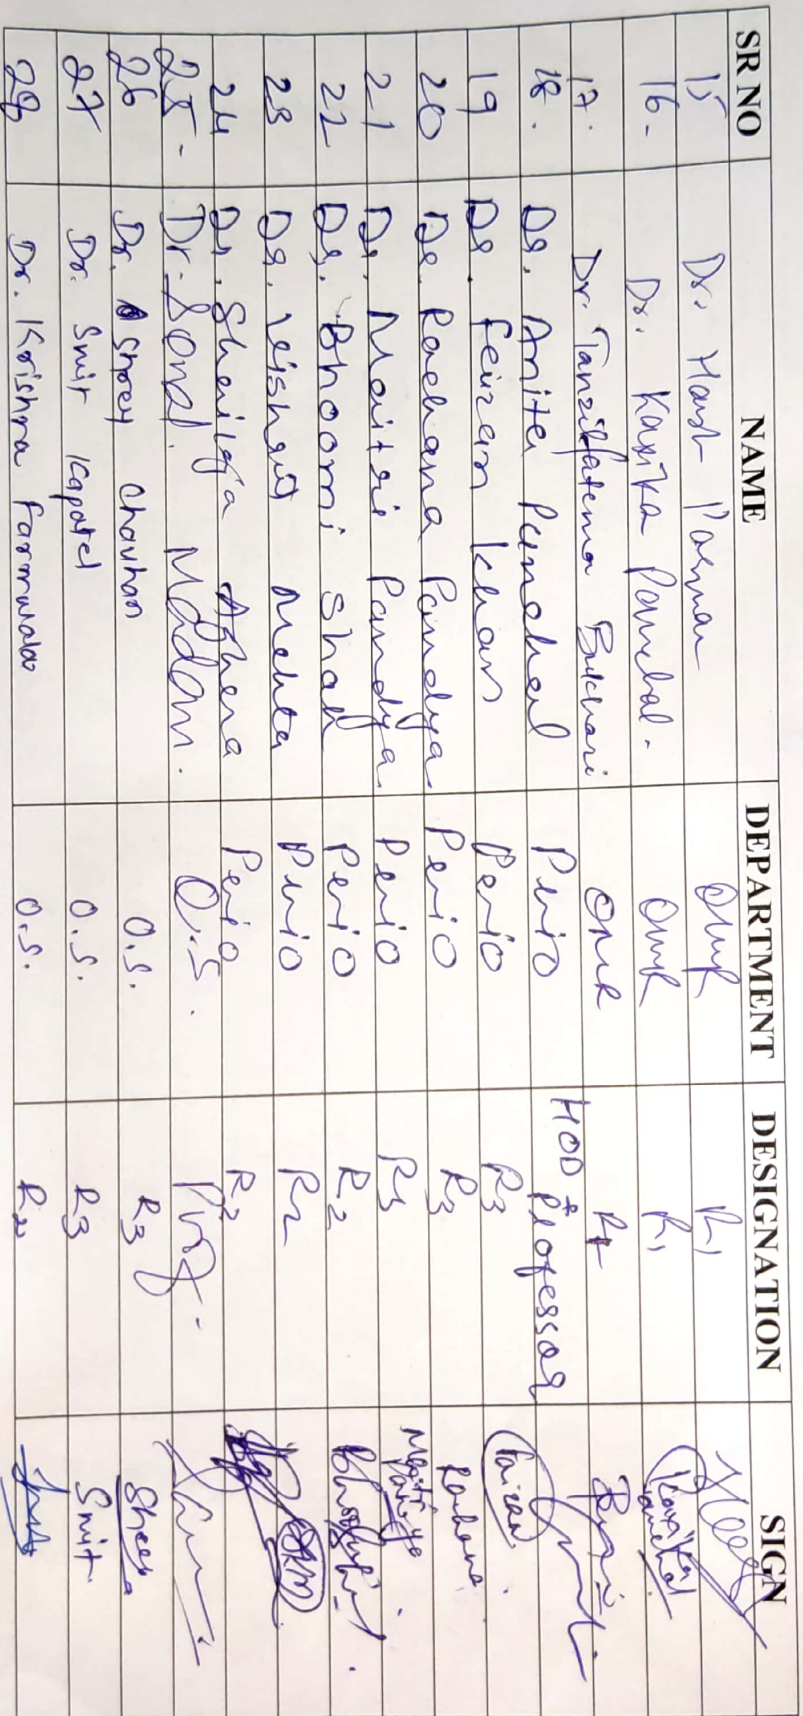 SR NO NAME DEPARTMENT DESIGNATION SIGN
15 Dr. Harsh Parmar OMR R1
16- Dr. Kaxika Panchal. OMR R1 Kaxika Panchal
17. Dr. Tanzilfatema Bukhari OMR
18. Dr. Anita Panchal Perio HOD & Professor
19 Dr. Faizan Khan Perio R3 Faizan
20 Dr. Rachana Pandya. Perio R3 Rachana
21 Dr. Maitri Pandya. Perio R3 Maitri Pandya
22 Dr. Bhoomi Shah Perio R2
23 Dr. Mehta Perio R2
24 Dr. Ashera Perio R2
25- Dr. Sonal. Madam. O.S. Prof.
26 Dr. Shrey Chauhan O.S. R3
27 Dr. Smit Kapatel O.S. R3 Smit.
28 Dr. Krishna O.S.